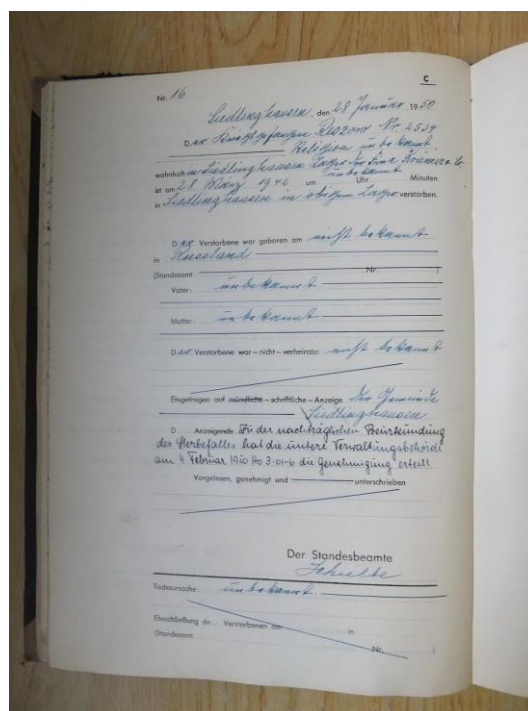 C
Nr. 16
Siedlinghausen, den 28 Januar 1950
D er Kriegsgefangene Reszow Nr. 2534
Religion unbekannt
wohnhaft in Siedlinghausen Lager der Firma Krämer & Co
ist am 28 März 1942 um unbekannt Uhr Minuten
in Siedlinghausen im obigen Lager verstorben.
D er Verstorbene war geboren am nicht bekannt
in Russland
(Standesamt Nr. )
Vater: unbekannt
Mutter: unbekannt
D er Verstorbene war – nicht – verheiratet nicht bekannt
Eingetragen auf mündliche – schriftliche – Anzeige der Gemeinde
Siedlinghausen
D Anzeigende Zu der nachträglichen Beurkundung
des Sterbefalles hat die untere Verwaltungsbehörde
am 4. Februar 1950 die Genehmigung erteilt.
Vorgelesen, genehmigt und unterschrieben
Der Standesbeamte
Schulte
Todesursache: unbekannt
Eheschließung de Verstorbenen am in
(Standesamt Nr. )